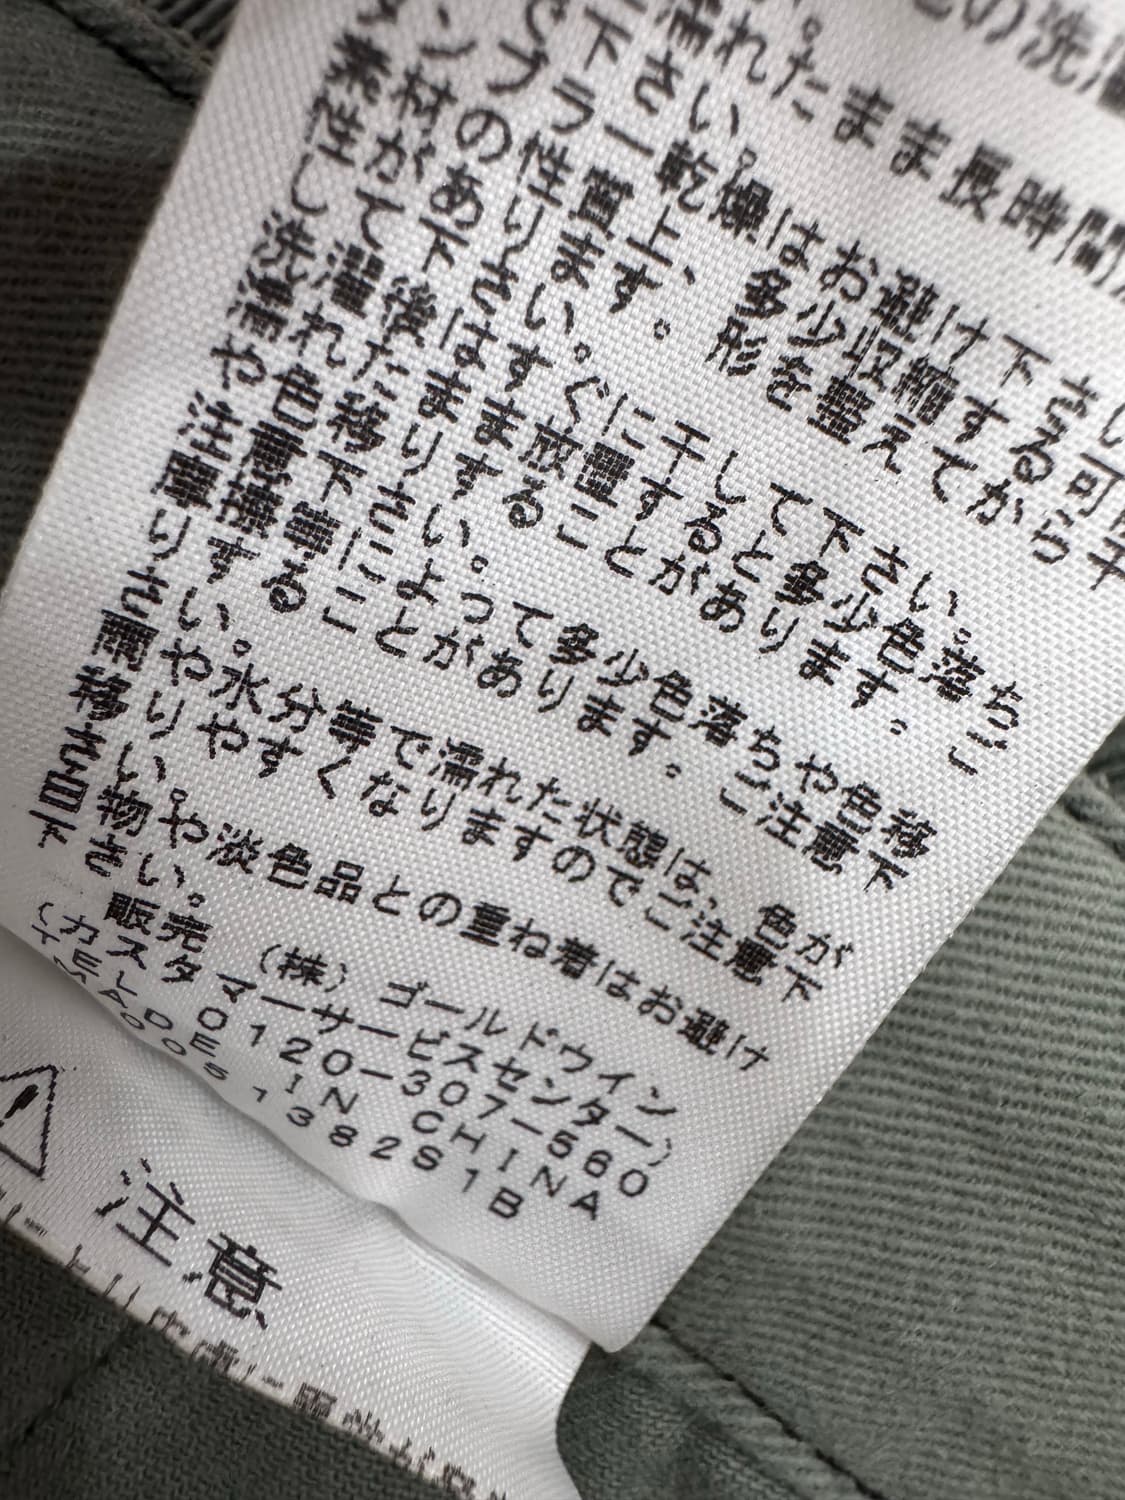 の洗濯
濡れたまま長時間
下さい。
タンブラー乾燥はお避け下さい
素材の性質上、多少収縮する可
性があります。形を整えてから干
して下さい。
洗濯後はすぐに干して下さい。
濡れたまま放置すると多少色落ち
や色移りすることがあります。ご
注意下さい。
摩擦等によって多少色落ちや色移
りすることがあります。ご注意下
さい。
雨や水分等で濡れた状態は、色が
移りやすくなりますのでご注意下
さい。
白い物や淡色品との重ね着はお避け
下さい。
販売 (株)ゴールドウイン
(カスタマーサービスセンター)
TEL 0120-307-560
MADE IN CHINA
A00051382S1B
注意